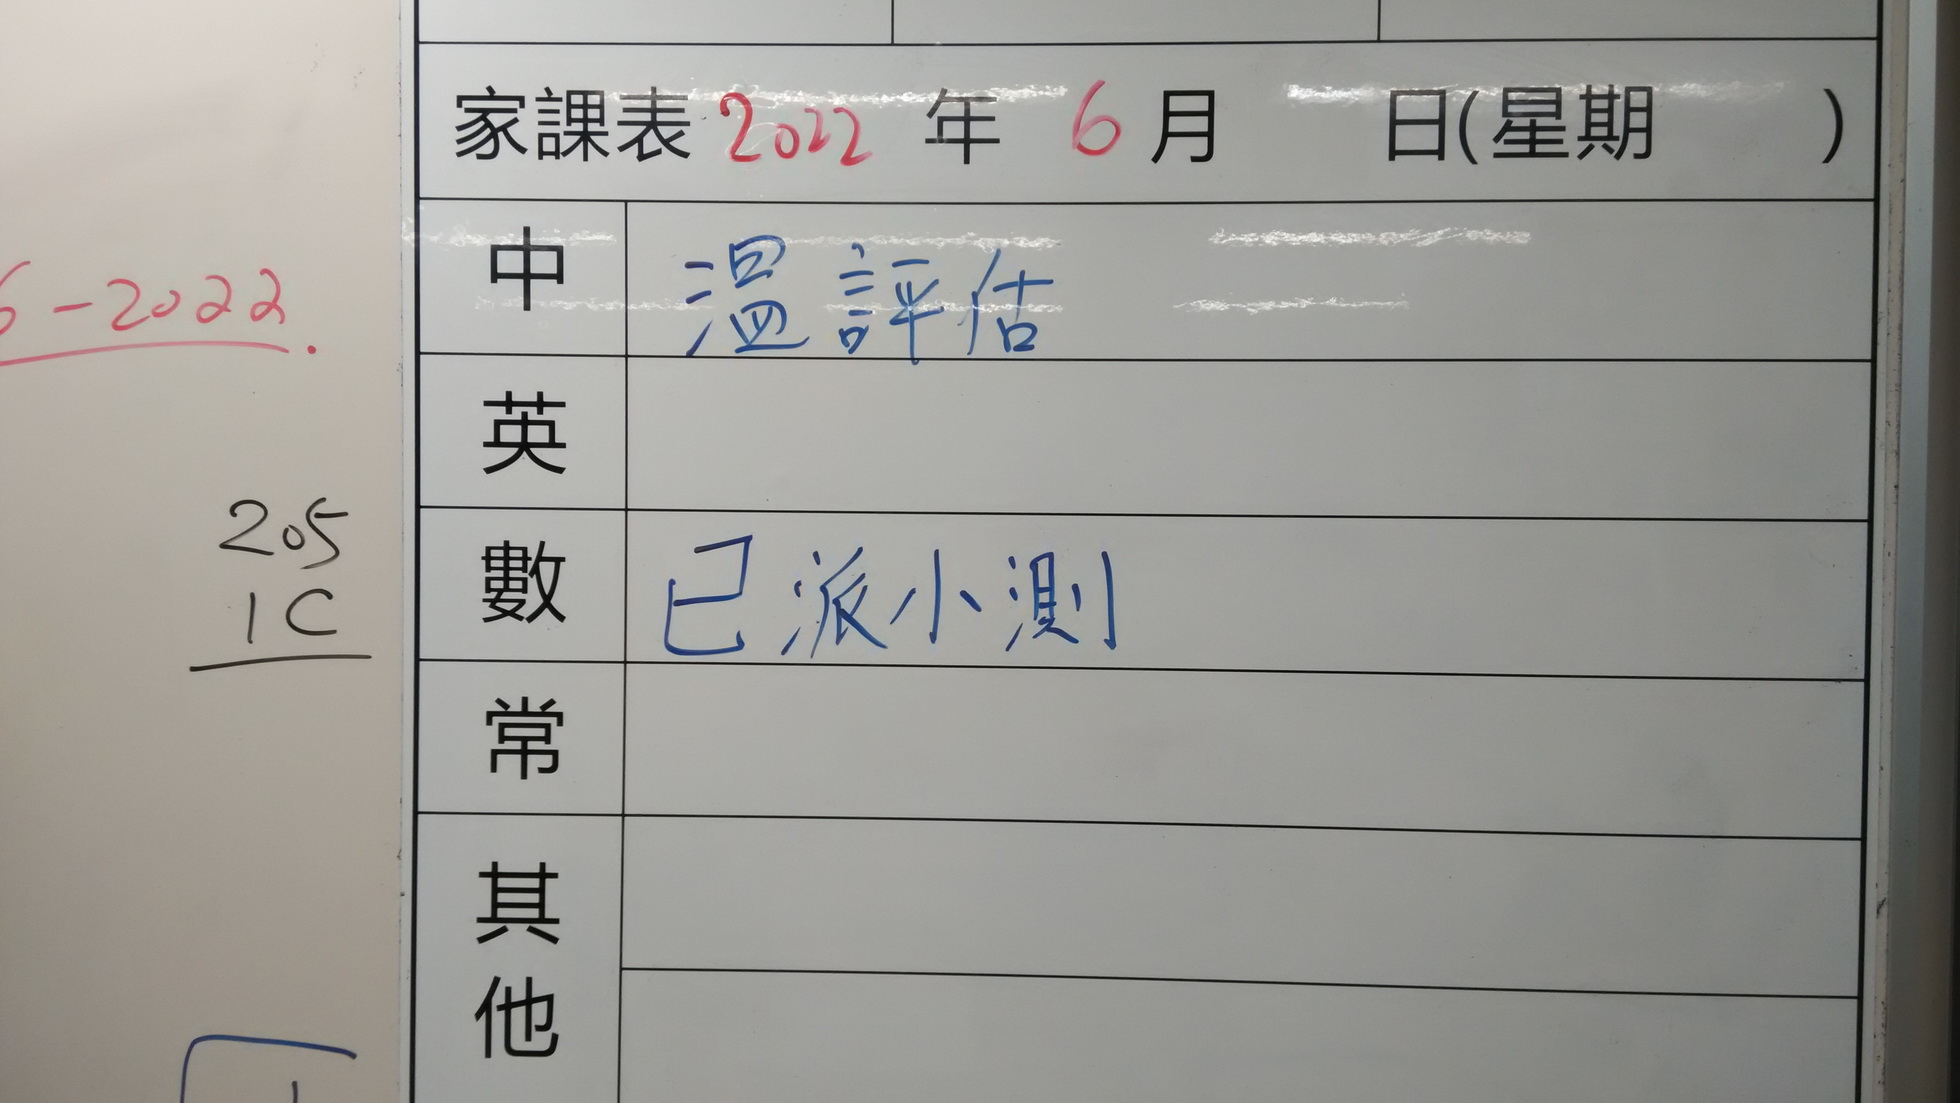 家課表 2022 年 6 月 日(星期 )
中 溫評估
英
數 已派小測
常
其他
6-2022.
205
1C